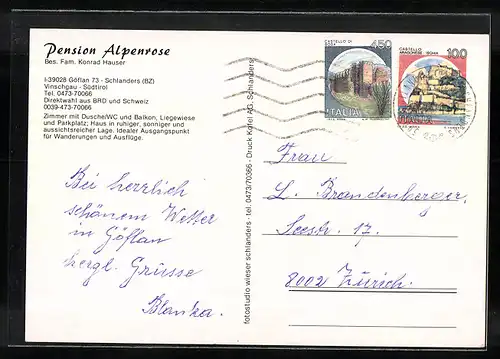 Pension Alpenrose
Bes. Fam. Konrad Hauser
I-39028 Göflan 73 - Schlanders (BZ)
Vinschgau - Südtirol
Tel. 0473-70066
Direktwahl aus BRD und Schweiz
0039-473-70066
Zimmer mit Dusche/WC und Balkon, Liegewiese
und Parkplatz; Haus in ruhiger, sonniger und
aussichtsreicher Lage. Idealer Ausgangspunkt
für Wanderungen und Ausflüge.
Bei herrlich
schönem Wetter
in Göflan
hergl. Grüsse
Blanka.
fotostudio wieser schlanders - tel. 0473/70366 - Druck Kofel AG, Schlanders
CASTELLO DI
450
ITALIA
CASTELLO
ARAGONESE ISCHIA
100
ITALIA
Frau
L. Brandenberger,
Seestr. 17.
8002 Zürich.